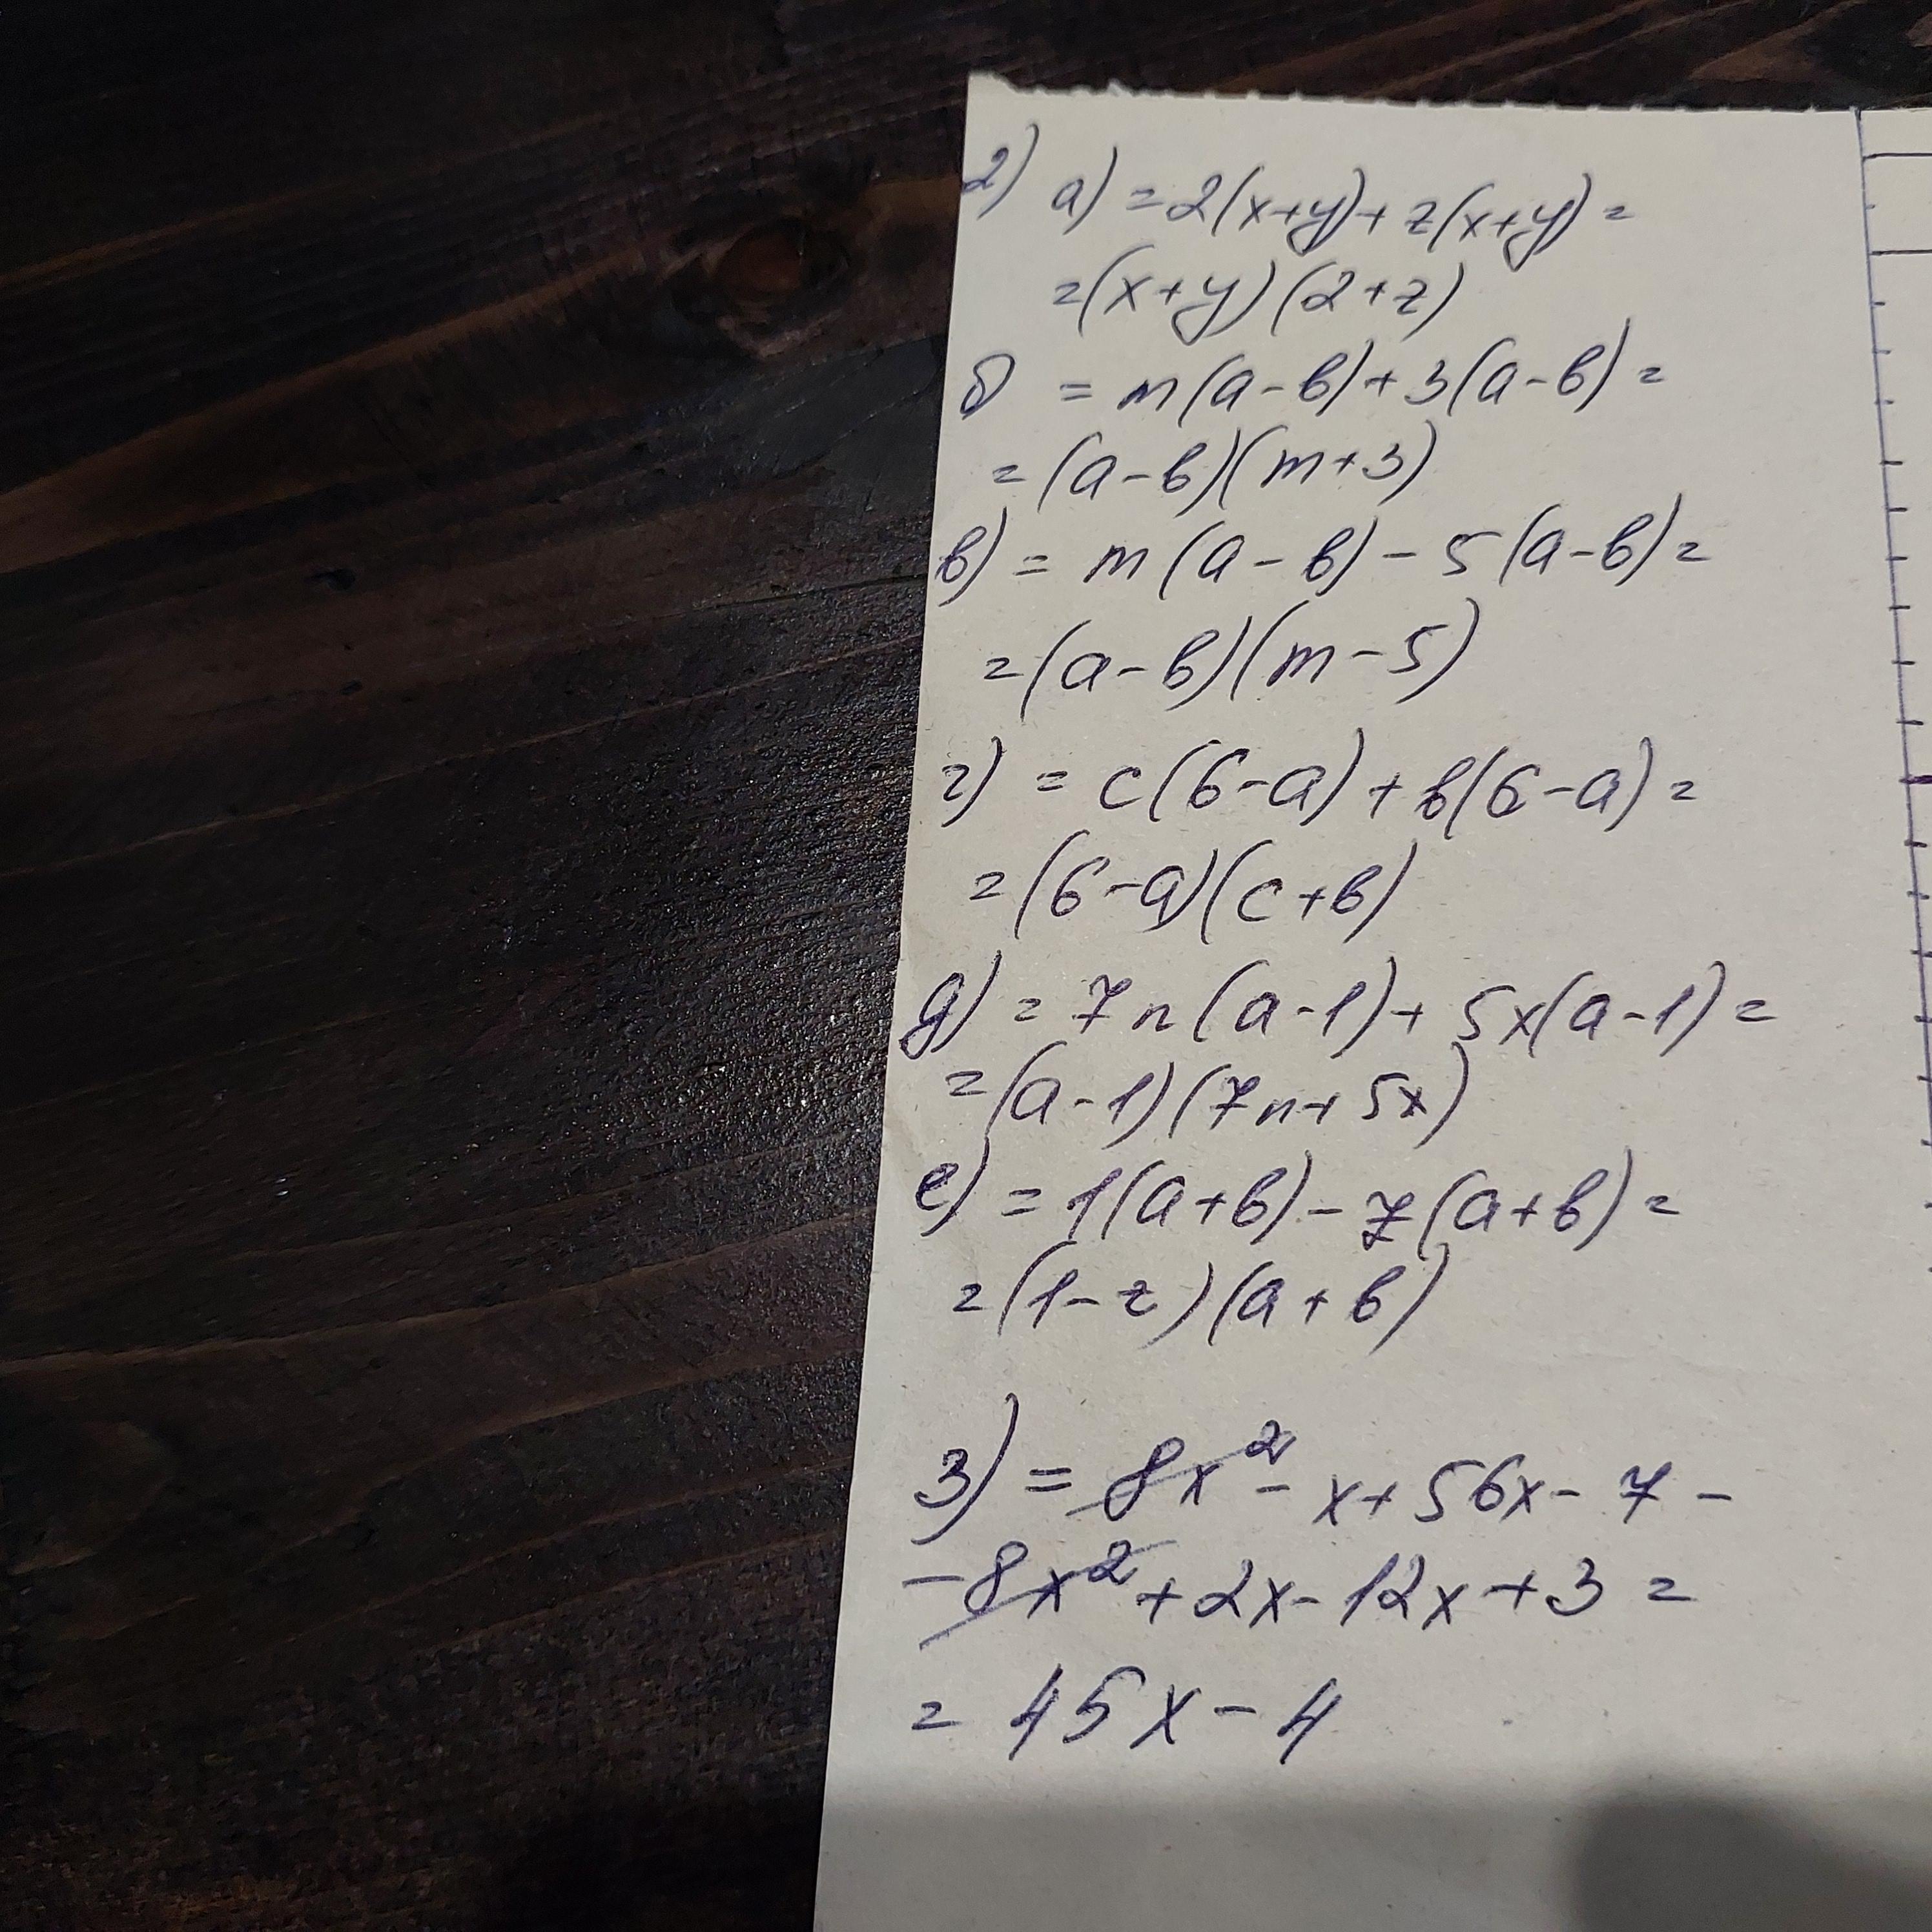 2) а) = 2(x+y)+z(x+y)=
=(x+y)(2+z)
б = m(a-в)+3(a-в)=
=(a-в)(m+3)
в) = m(a-в)-5(a-в)=
=(a-в)(m-5)
г) = c(6-a)+в(6-a)=
=(6-a)(c+в)
д) = 7n(a-1)+5x(a-1)=
=(a-1)(7n+5x)
е) = 1(a+в)-z(a+в)=
=(1-z)(a+в)
3) = 8x²-x+56x-7-
-8x²+2x-12x+3=
= 45x-4